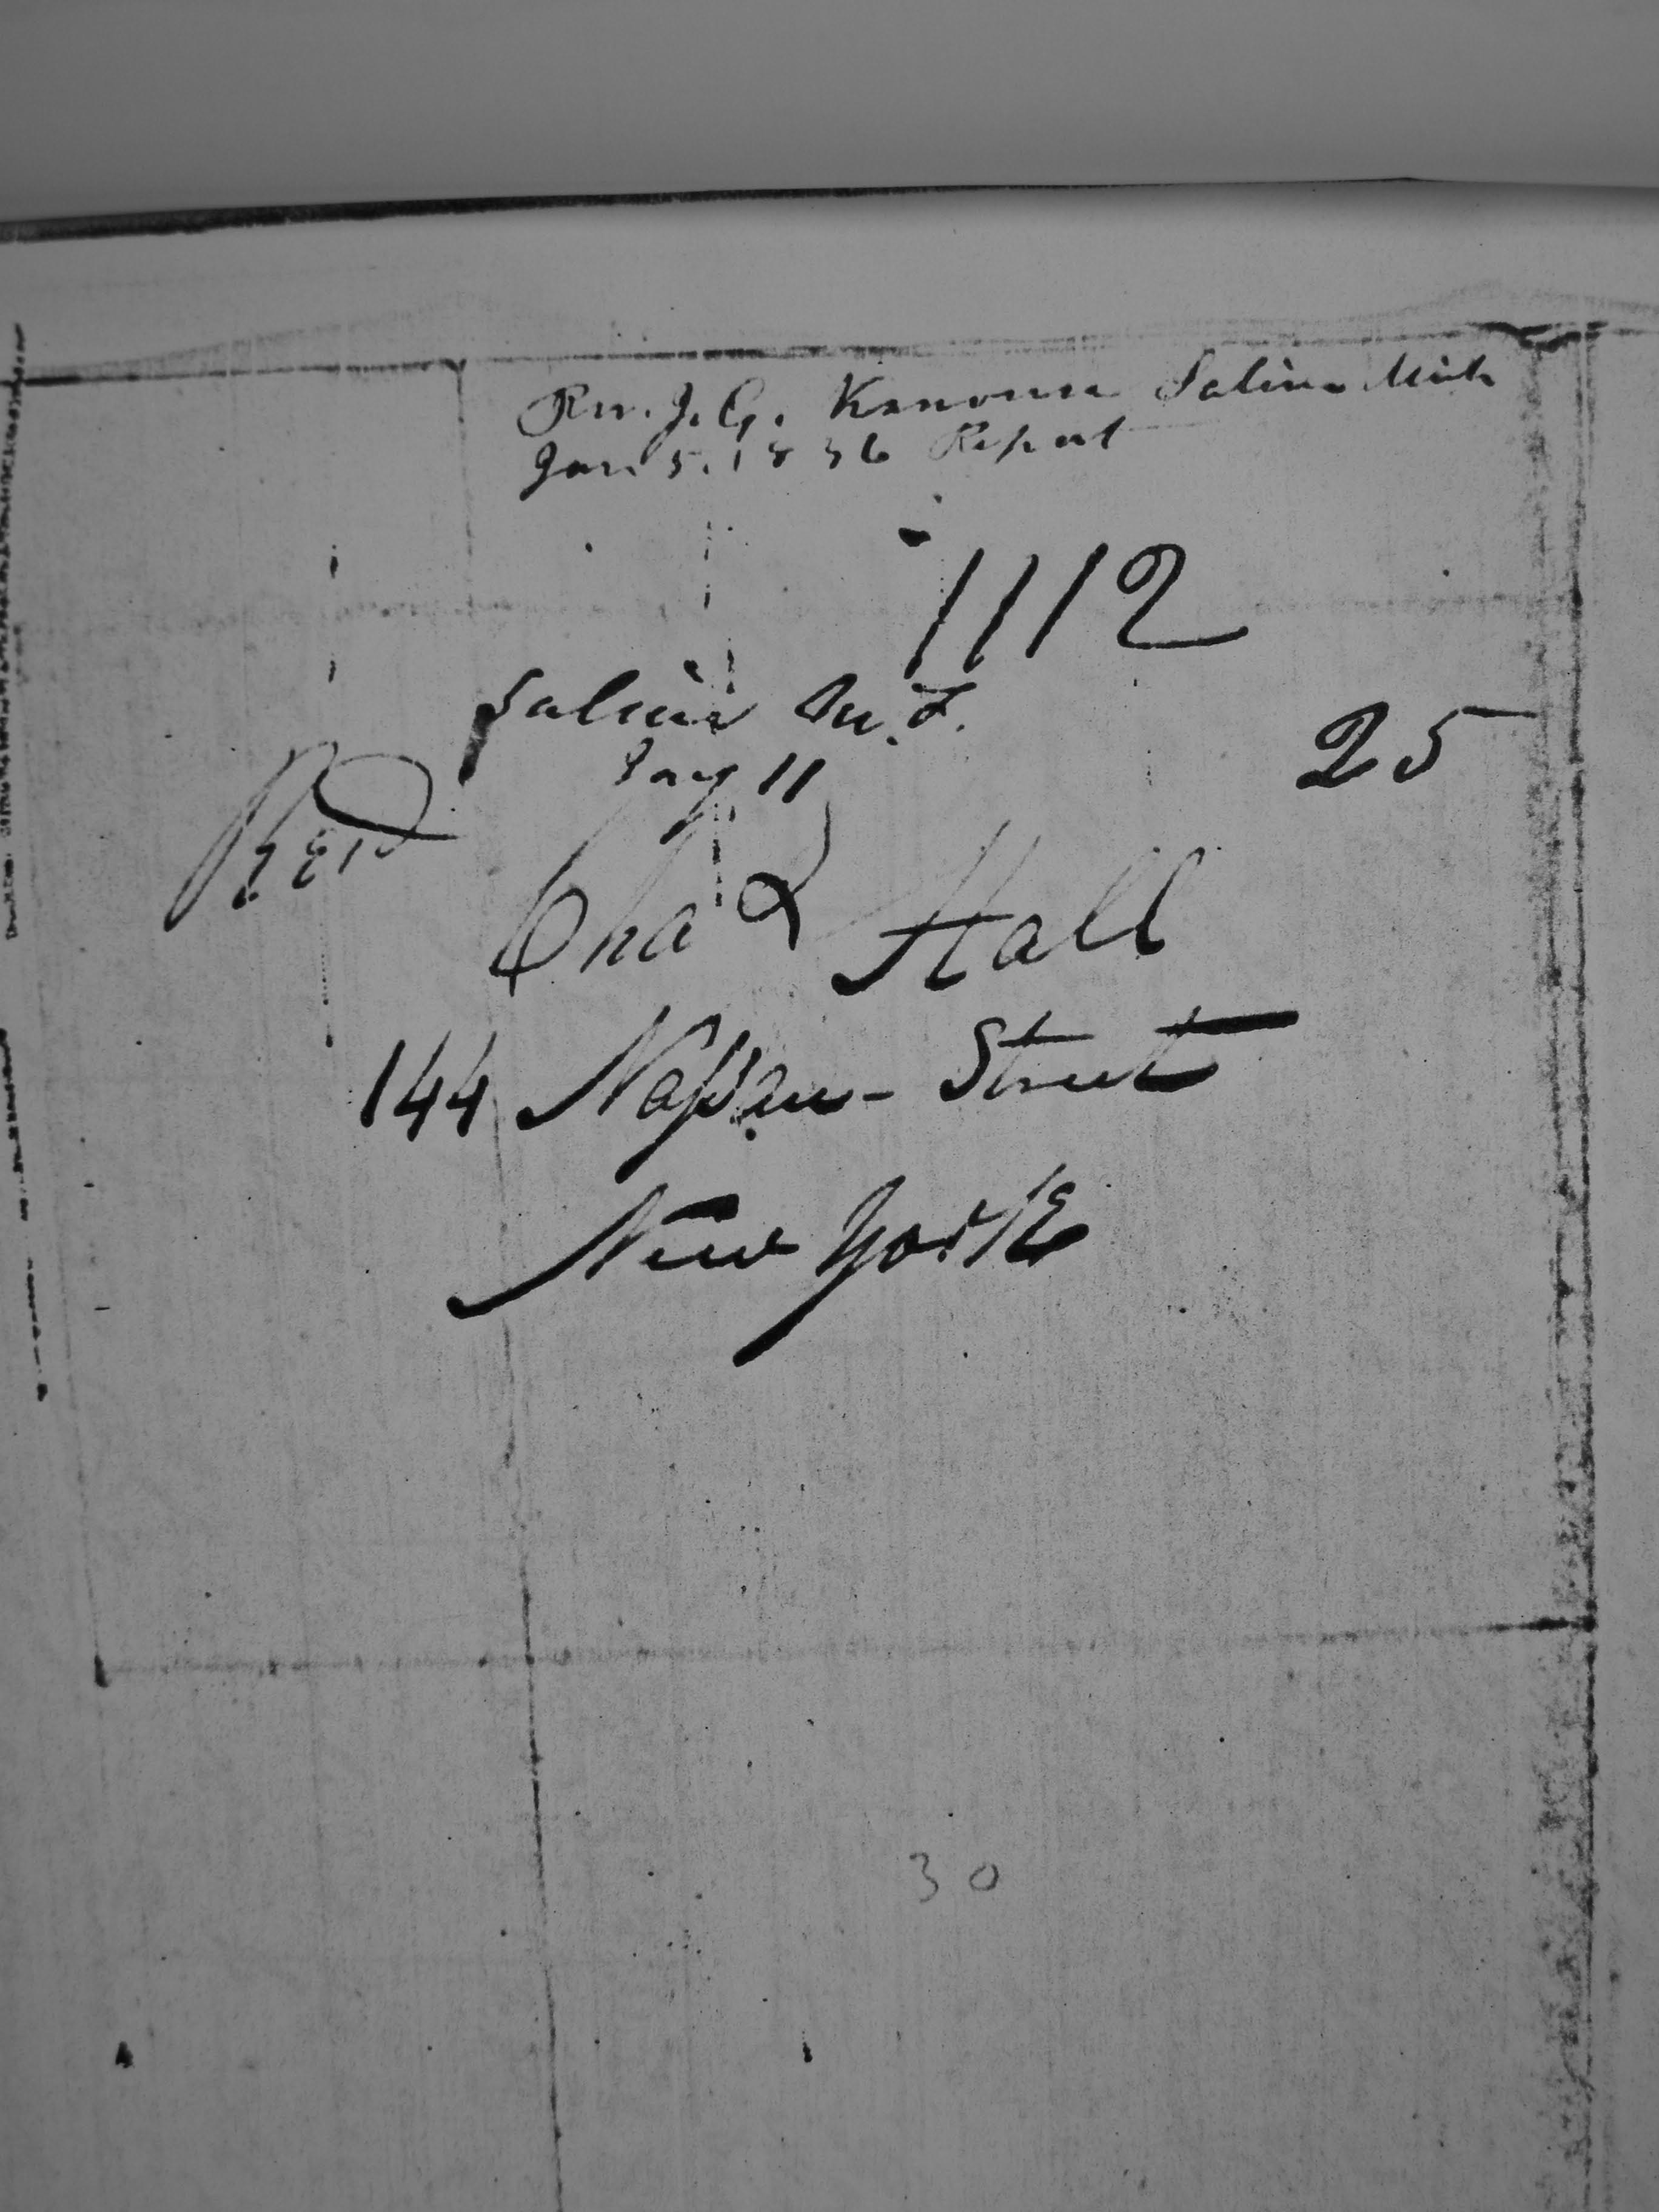 Rev. J. G. Kanouse Saline Mich
Jan. 5. 1836 Report
1112
Saline M. T.
Jany 11
25
Chas Hall
144 Nassau - Street
New York
30